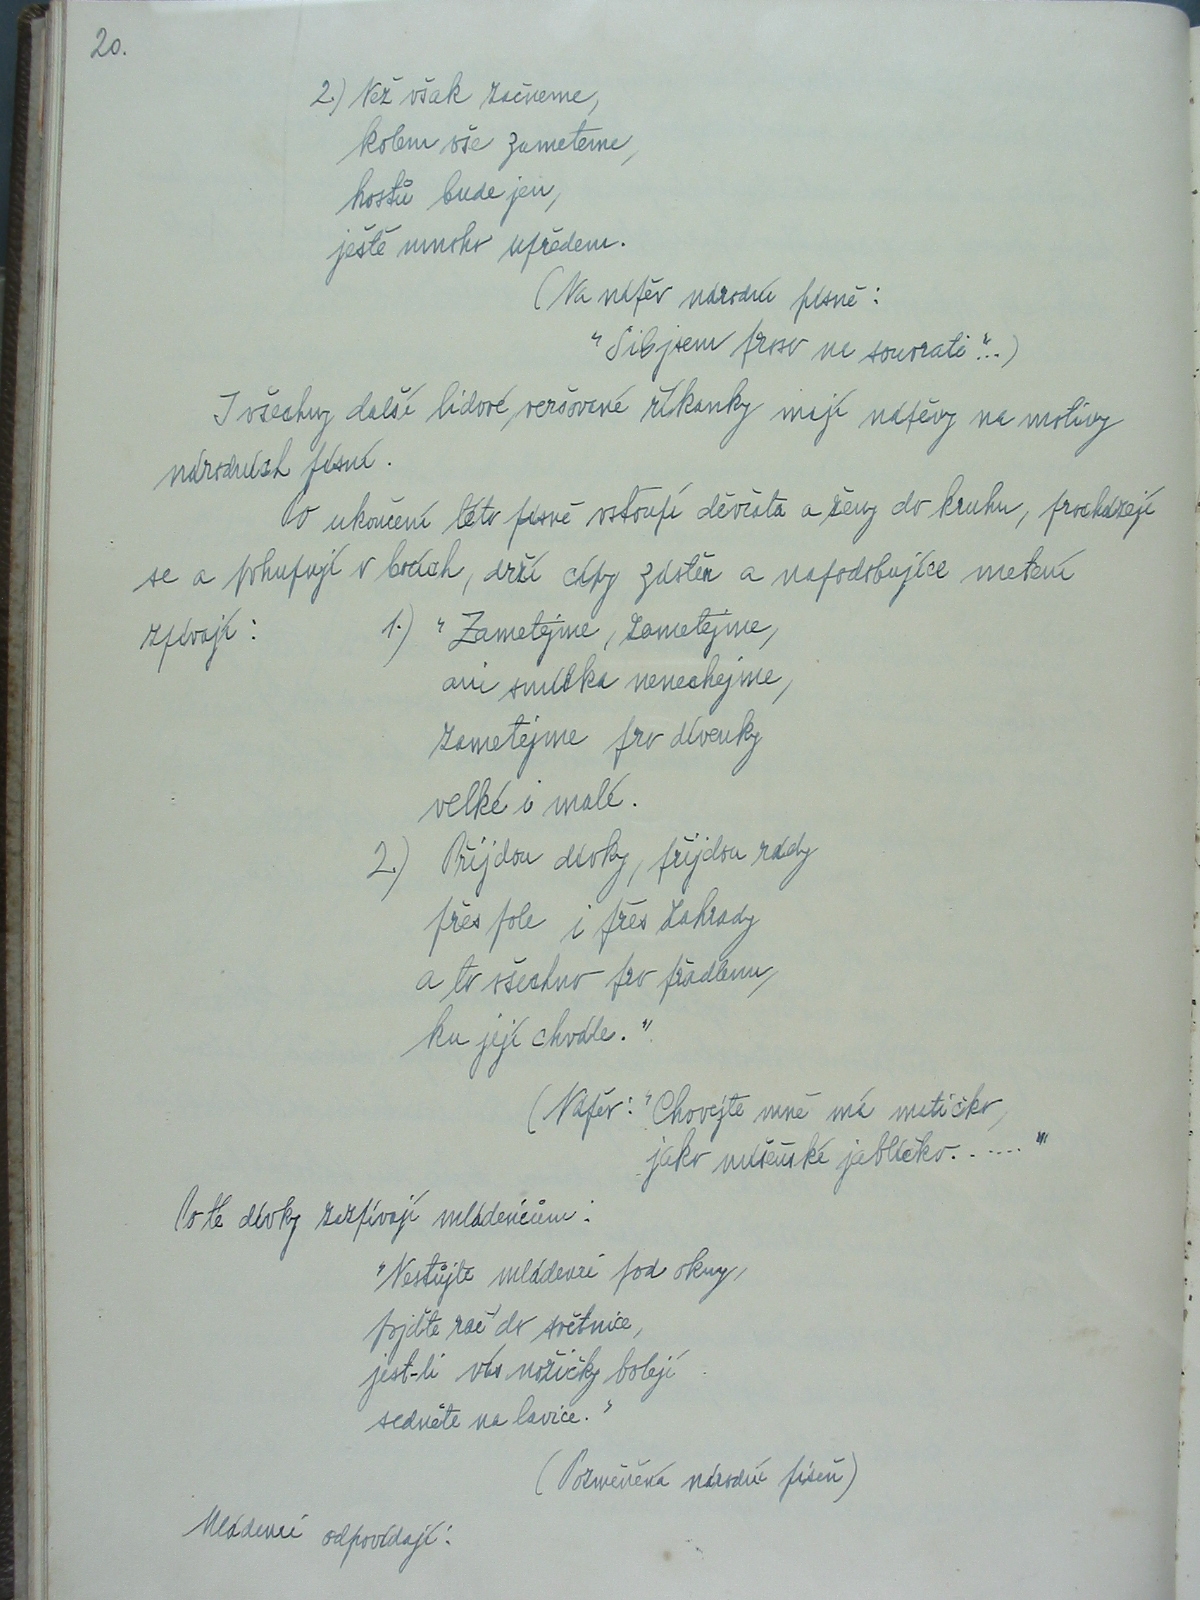 20.
2.) Než však začneme,
kolem vše zameteme,
hostů bude jen,
ještě mnoho upředem.
(Na nápěv národní písně:
"Sil jsem proso na souvrati"...)
I všechny další lidové, veršované říkanky mají nápěvy na motivy
národních písní.
Po ukončení této písně vstoupí děvčata a ženy do kruhu, procházejí
se a pohupují v bocích, drží cípy zástěr a napodobujíce metení
zpívají: 1.) "Zametejme, zametejme,
ani smítka nenechejme,
zametejme pro divenky
velké i malé.
2.) Přijdou dívky, přijdou rády
přes pole i přes zahrady
a to všechno pro přádlenu,
ku její chvále."
(Nápěv: "Chovejte mně má matičko,
jako míšeňské jablíčko......."
Po té dívky zazpívají mládencům:
"Nestůjte mládenci pod okny,
pojďte rač do světnice,
jest-li vás nožičky bolejí
sedněte na lavice."
(Pozměněná národní píseň)
Mládenci odpovídají: